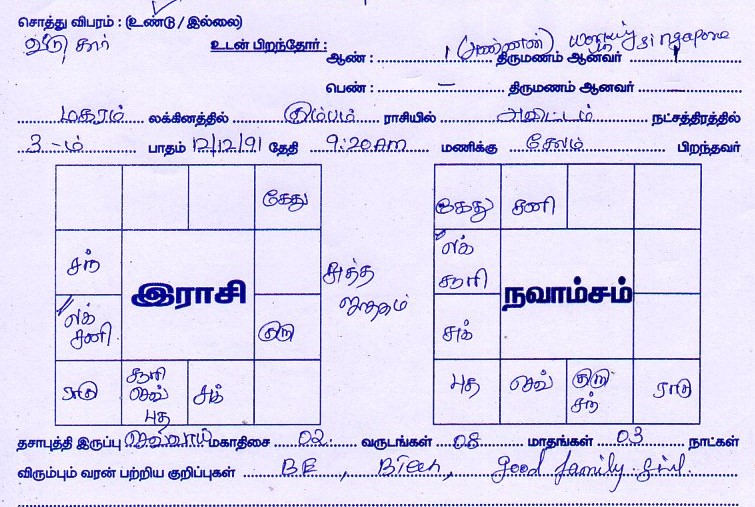 சொத்து விபரம் : (உண்டு / இல்லை)
வீடு கார் உடன் பிறந்தோர் : ஆண் : 1 (அண்ணன்) திருமணம் ஆனவர் 1 Singapore
பெண் : – திருமணம் ஆனவர் –
மகரம் லக்கினத்தில் கும்பம் ராசியில் அவிட்டம் நட்சத்திரத்தில்
3-ம் பாதம் 12/12/91 தேதி 9:20AM மணிக்கு சேலம் பிறந்தவர்
கேது
கேது சனி
சந்
லக் சூரி
இராசி
சுத்த ஜாதகம்
நவாம்சம்
லக் சனி
குரு
சுக்
ராகு
சூரி செவ் புத
சுக்
புத
செவ்
குரு சந்
ராகு
தசாபுத்தி இருப்பு செவ்வாய் மகாதிசை 02 வருடங்கள் 08 மாதங்கள் 03 நாட்கள்
விரும்பும் வரன் பற்றிய குறிப்புகள் BE, BTech, Good family Girl.